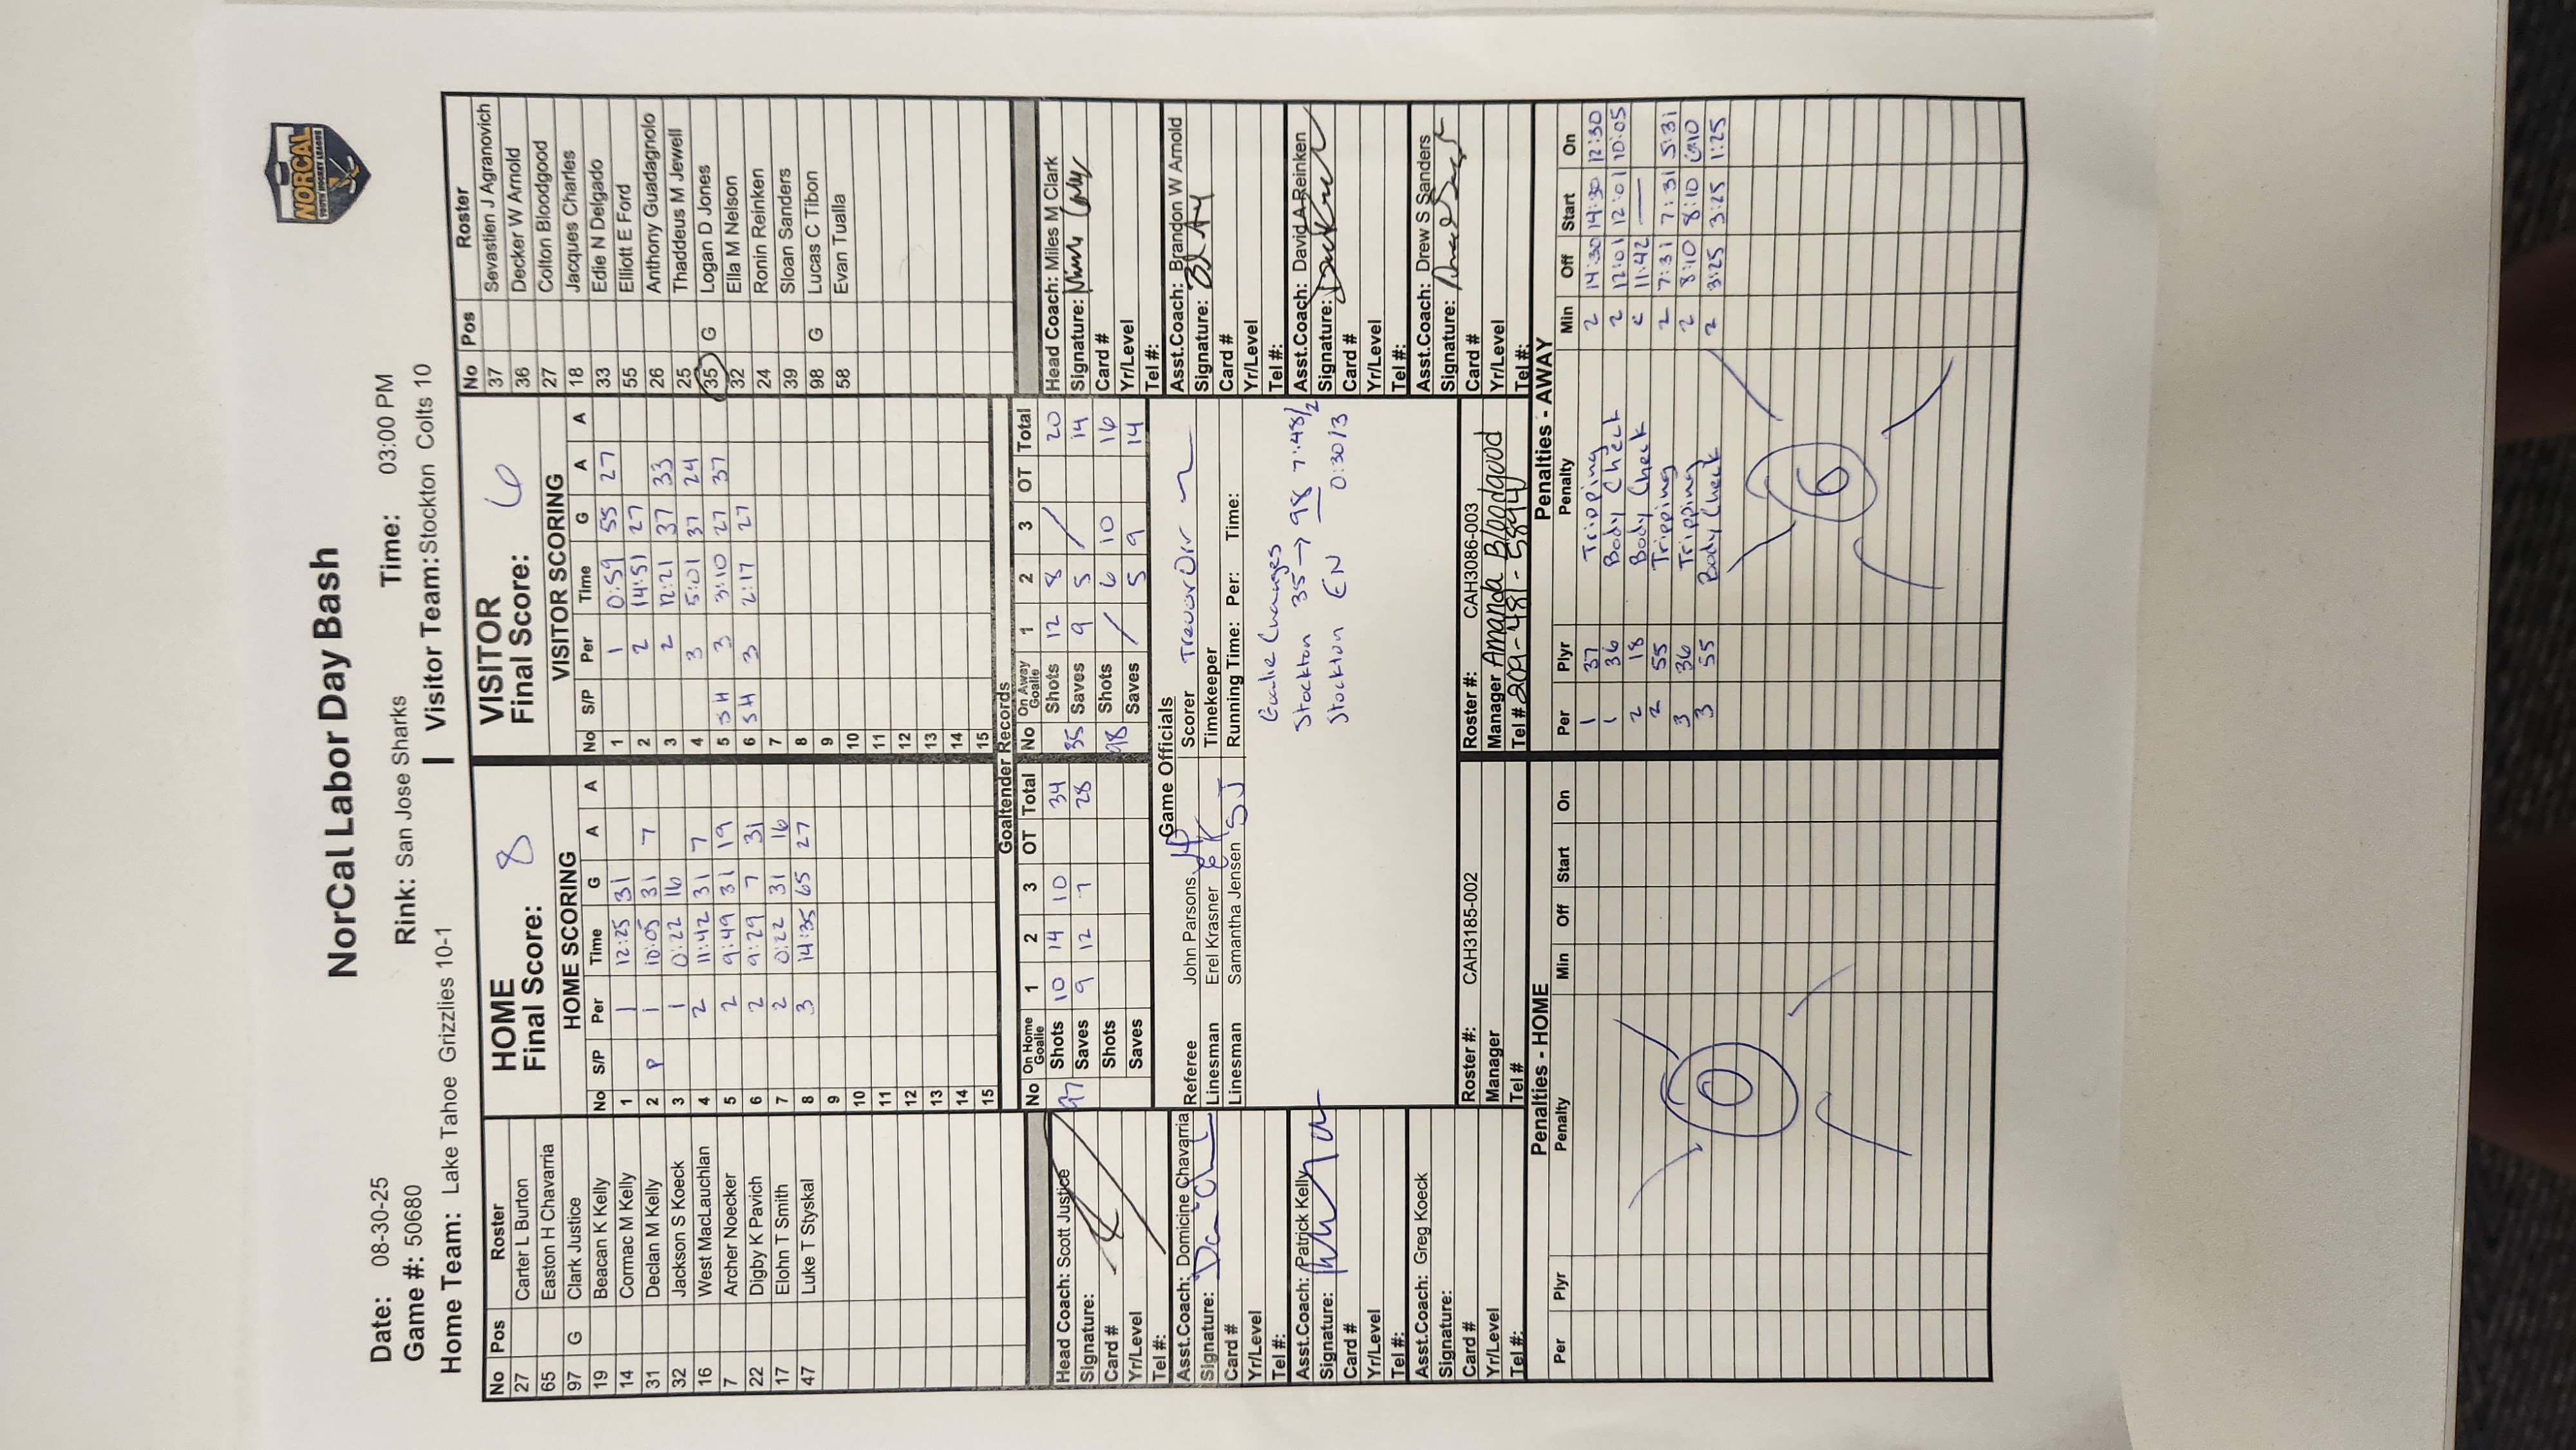 NORCAL
YOUTH HOCKEY LEAGUE
NorCal Labor Day Bash
Date: 08-30-25 Rink: San Jose Sharks Time: 03:00 PM
Game #: 50680
Home Team: Lake Tahoe Grizzlies 10-1 | Visitor Team: Stockton Colts 10
No Pos Roster
27 Carter L Burton
65 Easton H Chavarria
97 G Clark Justice
19 Beacan K Kelly
14 Cormac M Kelly
31 Declan M Kelly
32 Jackson S Koeck
16 West MacLauchlan
7 Archer Noecker
22 Digby K Pavich
17 Elohn T Smith
47 Luke T Styskal
HOME
Final Score: 8
HOME SCORING
No S/P Per Time G A A
1 1 12:25 31
2 P 1 10:05 31 7
3 1 0:22 16
4 2 11:42 31 7
5 2 9:49 31 19
6 2 9:29 7 31
7 2 0:22 31 16
8 3 14:35 65 27
9
10
11
12
13
14
15
VISITOR
Final Score: 6
VISITOR SCORING
No S/P Per Time G A A
1 1 0:59 55 27
2 2 14:51 27
3 2 12:21 37 33
4 3 5:01 37 24
5 SH 3 3:10 27 37
6 SH 3 2:17 27
7
8
9
10
11
12
13
14
15
No Pos Roster
37 Sevastien J Agranovich
36 Decker W Arnold
27 Colton Bloodgood
18 Jacques Charles
33 Edie N Delgado
55 Elliott E Ford
26 Anthony Guadagnolo
25 Thaddeus M Jewell
35 G Logan D Jones
32 Ella M Nelson
24 Ronin Reinken
39 Sloan Sanders
98 G Lucas C Tibon
58 Evan Tualla
Goaltender Records
No On Home Goalie 1 2 3 OT Total
97 Shots 10 14 10 34
Saves 9 12 7 28
Shots
Saves
No On Away Goalie 1 2 3 OT Total
35 Shots 12 8 / 20
Saves 9 5 / 14
98 Shots / 6 10 16
Saves 5 9 14
Head Coach: Scott Justice
Signature:
Card #
Yr/Level
Tel #:
Asst.Coach: Domicine Chavarria
Signature:
Card #
Yr/Level
Tel #:
Asst.Coach: Patrick Kelly
Signature:
Card #
Yr/Level
Tel #:
Asst.Coach: Greg Koeck
Signature:
Card #
Yr/Level
Tel #:
Game Officials
Referee John Parsons JP
Linesman Erel Krasner EK
Linesman Samantha Jensen SJ
Scorer Trevor Orr
Timekeeper
Running Time: Per: Time:
Goalie Changes
Stockton 35 → 98 7:48/2
Stockton EN 0:30/3
Roster #: CAH3185-002
Manager
Tel #
Roster #: CAH3086-003
Manager Amanda Bloodgood
Tel # 209-481-5894
Head Coach: Miles M Clark
Signature:
Card #
Yr/Level
Tel #:
Asst.Coach: Brandon W Arnold
Signature:
Card #
Yr/Level
Tel #:
Asst.Coach: David A Reinken
Signature:
Card #
Yr/Level
Tel #:
Asst.Coach: Drew S Sanders
Signature:
Card #
Yr/Level
Tel #:
Penalties - HOME
Per Plyr Penalty Min Off Start On
0
Penalties - AWAY
Per Plyr Penalty Min Off Start On
1 37 Tripping 2 14:30 14:30 12:30
1 36 Body Check 2 12:01 12:01 10:05
2 18 Body Check 2 11:42 —
2 55 Tripping 2 7:31 7:31 5:31
3 36 Tripping 2 8:10 8:10 6:10
3 55 Body Check 2 3:25 3:25 1:25
6